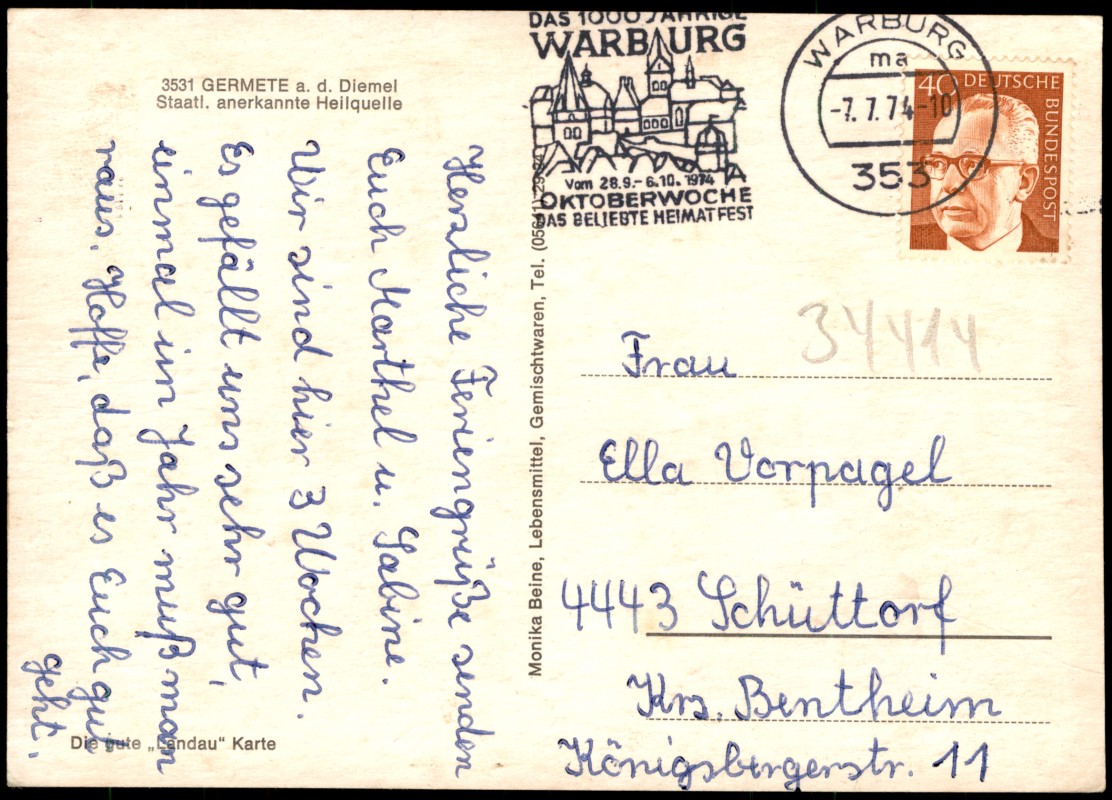 3531 GERMETE a. d. Diemel
Staatl. anerkannte Heilquelle
Herzliche Feriengrüße senden
Euch Marthel u. Sabine.
Wir sind hier 3 Wochen.
Es gefällt uns sehr gut,
einmal im Jahr muß man
raus. Hoffe, daß es Euch gut
geht.
Die gute „Landau" Karte
Monika Beine, Lebensmittel, Gemischtwaren, Tel.
DAS 1000 JÄHRIGE
WARBURG
Vom 28.9.-6.10.1974
OKTOBERWOCHE
DAS BELIEBTE HEIMATFEST
WARBURG
ma
-7.7.74-10
353
40 DEUTSCHE
BUNDESPOST
34414
Frau
Ella Vorpagel
4443 Schüttorf
Krs. Bentheim
Königsbergerstr. 11